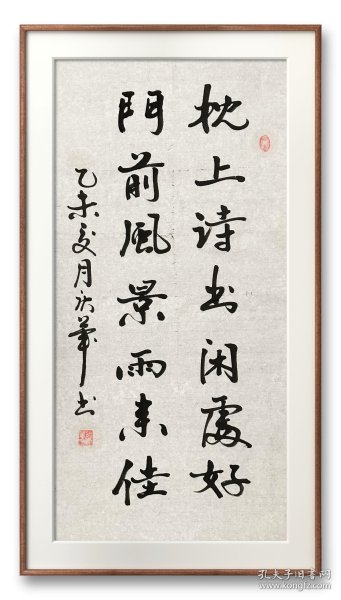 枕上诗书闲處好
門前風景雨来佳
乙未夏月庆華书
孔夫子旧书网
www.kongfz.com